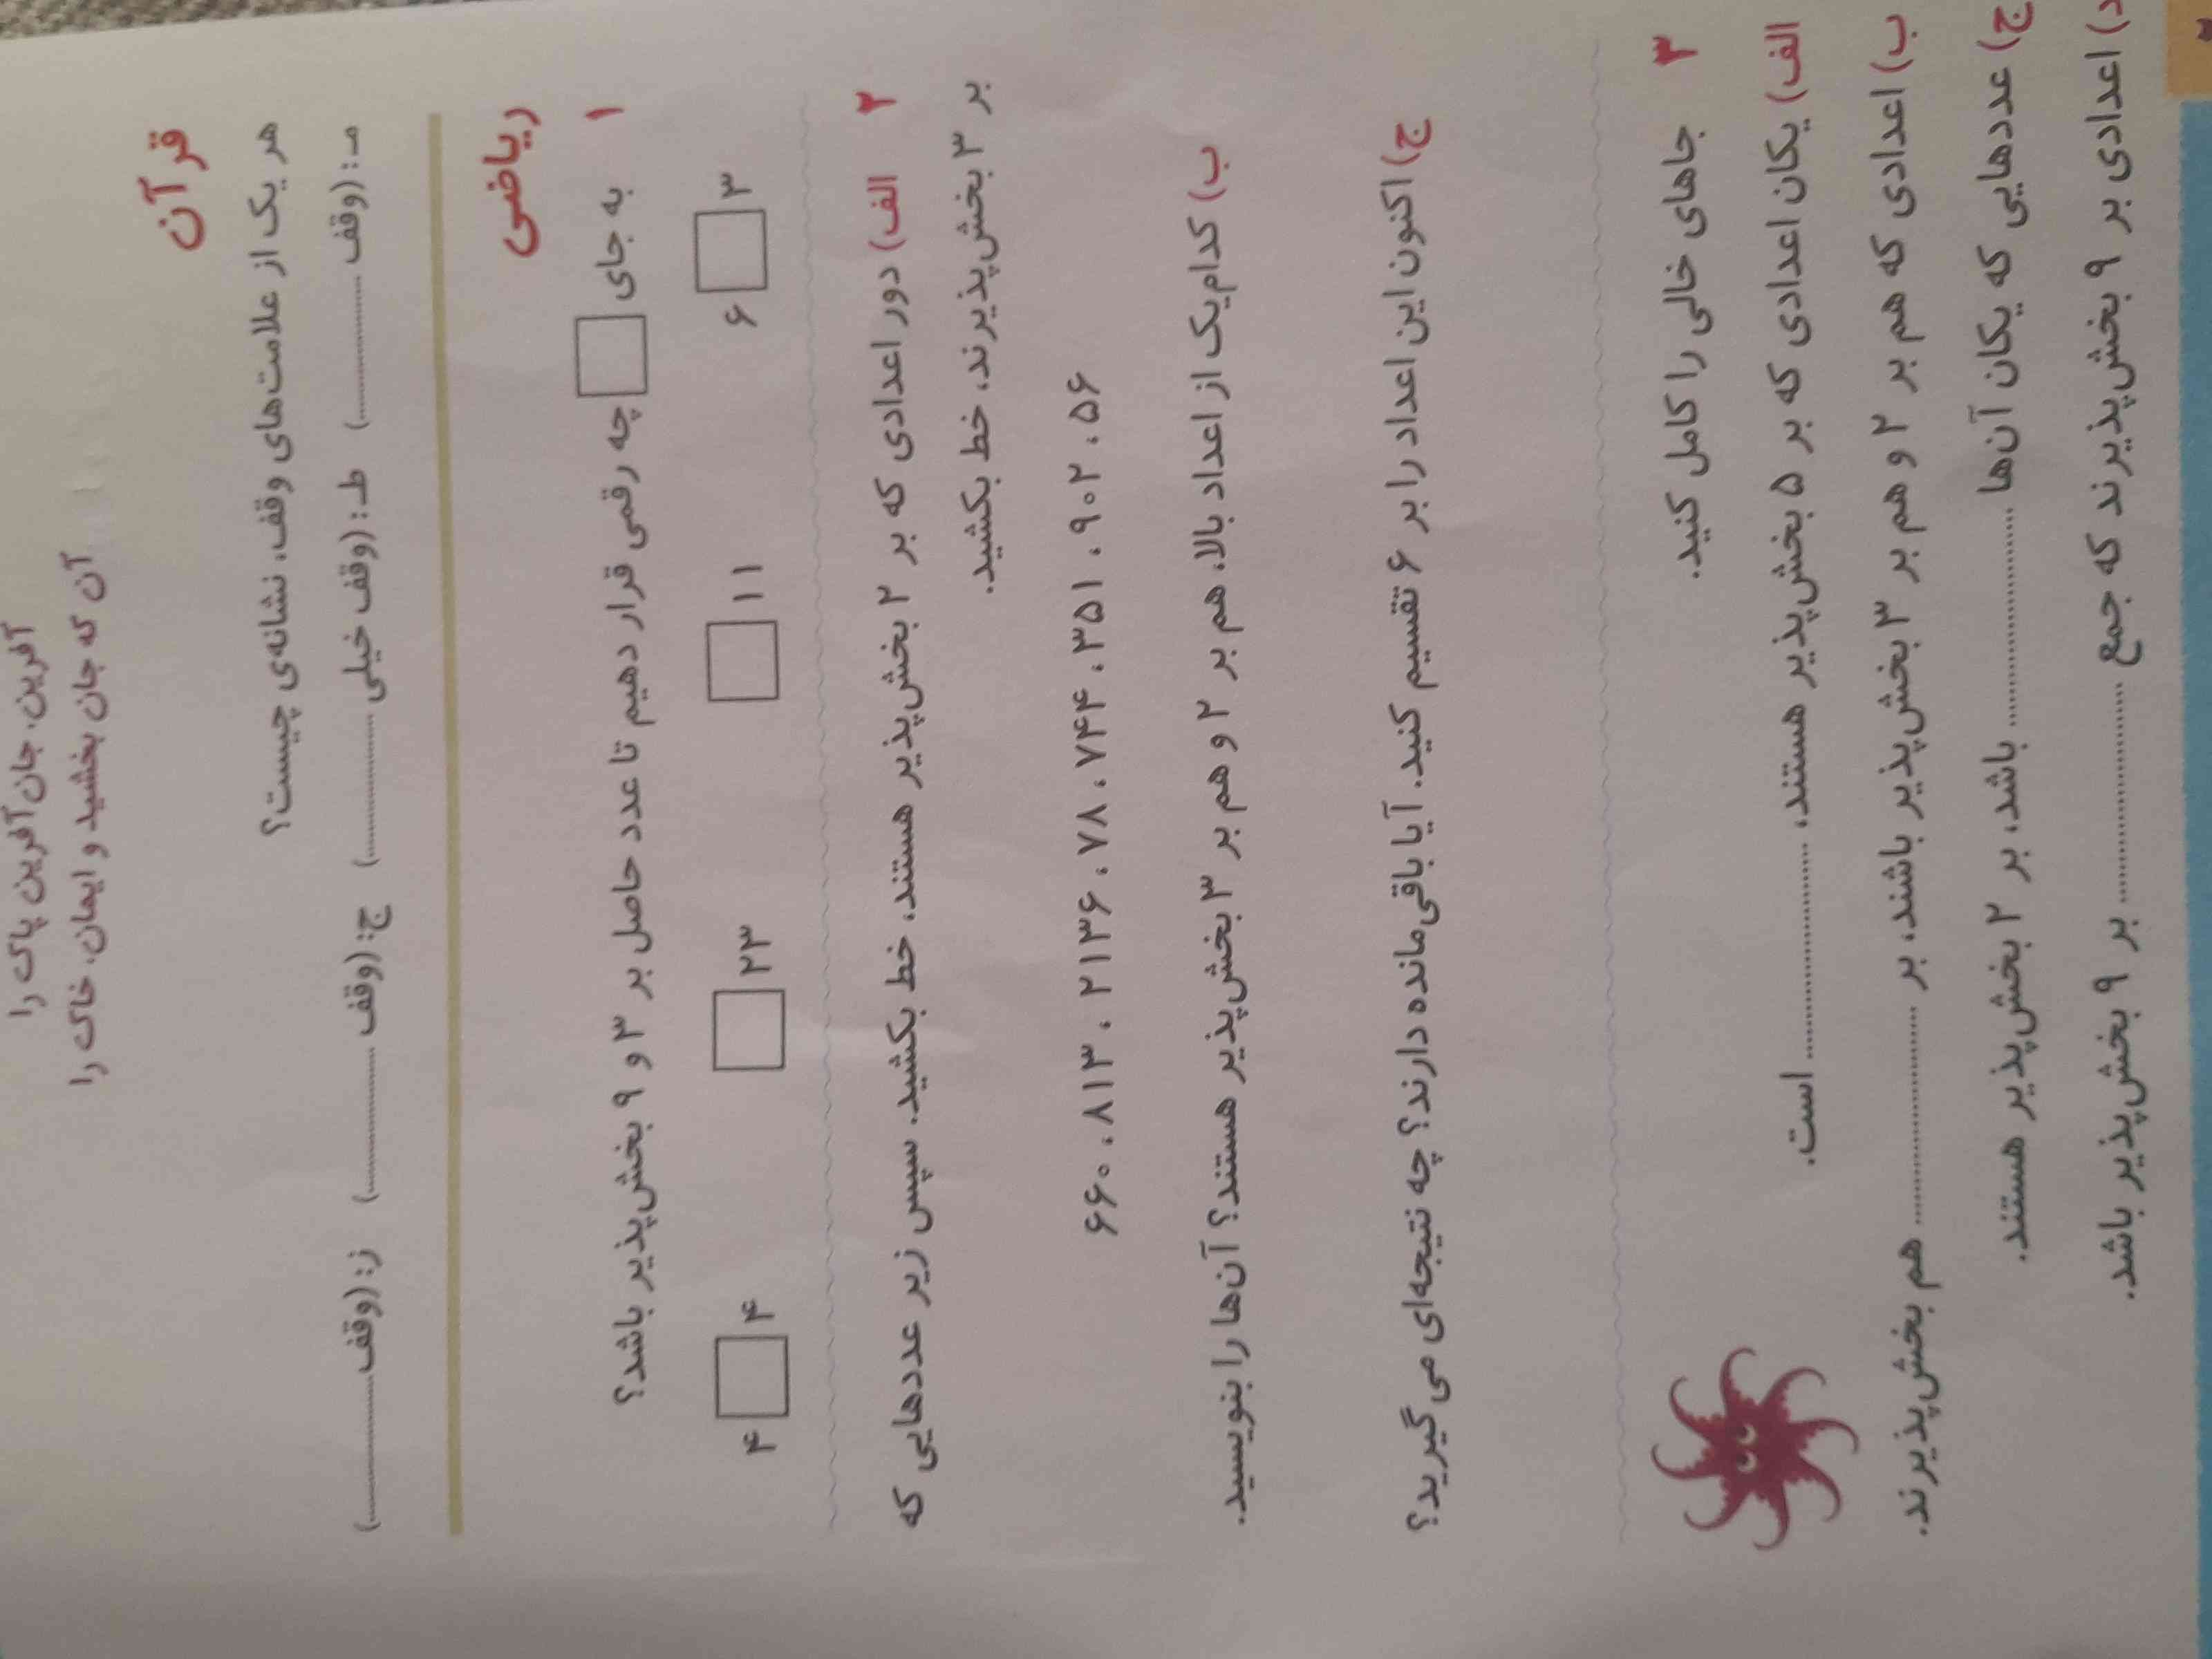 آفرین، جان آفرین پاک را
آن که جان بخشید و ایمان، خاک را
قرآن
هر یک از علامت‌های وقف، نشانه‌ی چیست؟
مـ: (وقف ..................) طـ: (وقف خیلی ..................) ج: (وقف ..................) ز: (وقف ..................)
ریاضی
۱ به جای □ چه رقمی قرار دهیم تا عدد حاصل بر ۳ و ۹ بخش‌پذیر باشد؟
۶□۳ □۱۱ □۲۳ ۴□۴
۲ الف) دور اعدادی که بر ۲ بخش‌پذیر هستند، خط بکشید. سپس زیر عددهایی که
بر ۳ بخش‌پذیرند، خط بکشید.
۶۶۰ ، ۸۱۳ ، ۲۱۳۶ ، ۷۸ ، ۷۴۴ ، ۳۵۱ ، ۹۰۲ ، ۵۶
ب) کدام‌یک از اعداد بالا، هم بر ۲ و هم بر ۳ بخش‌پذیر هستند؟ آن‌ها را بنویسید.
ج) اکنون این اعداد را بر ۶ تقسیم کنید. آیا باقی‌مانده دارند؟ چه نتیجه‌ای می‌گیرید؟
۳ جاهای خالی را کامل کنید.
الف) یکان اعدادی که بر ۵ بخش‌پذیر هستند، .................. است.
ب) اعدادی که هم بر ۲ و هم بر ۳ بخش‌پذیر باشند، بر .................. هم بخش‌پذیرند.
ج) عددهایی که یکان آن‌ها .................. باشد، بر ۲ بخش‌پذیر هستند.
د) اعدادی بر ۹ بخش‌پذیرند که جمع .................. بر ۹ بخش‌پذیر باشد.